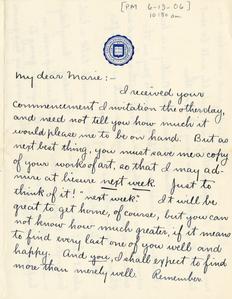 [PM 6-13-06]
10:30 am
My dear Marie:-
I received your
Commencement Invitation the other day,
and need not tell you how much it
would please me to be on hand. But as
next best thing, you must save me a copy
of your works of art, so that I may ad-
mire at leisure next week. Just to
think of it! "next week." It will be
great to get home, of course, but you can
not know how much greater, if it means
to find every last one of you well and
happy. And you, I shall expect to find
more than merely well. Remember